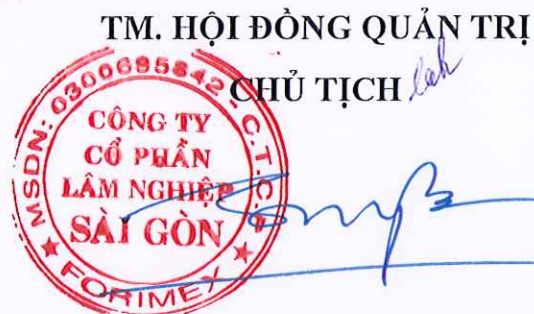 TM. HỘI ĐỒNG QUẢN TRỊ
CHỦ TỊCH
MSDN: 0300695842-C.T.C.P
CÔNG TY
CỔ PHẦN
LÂM NGHIỆP
SÀI GÒN
★ FORIMEX ★